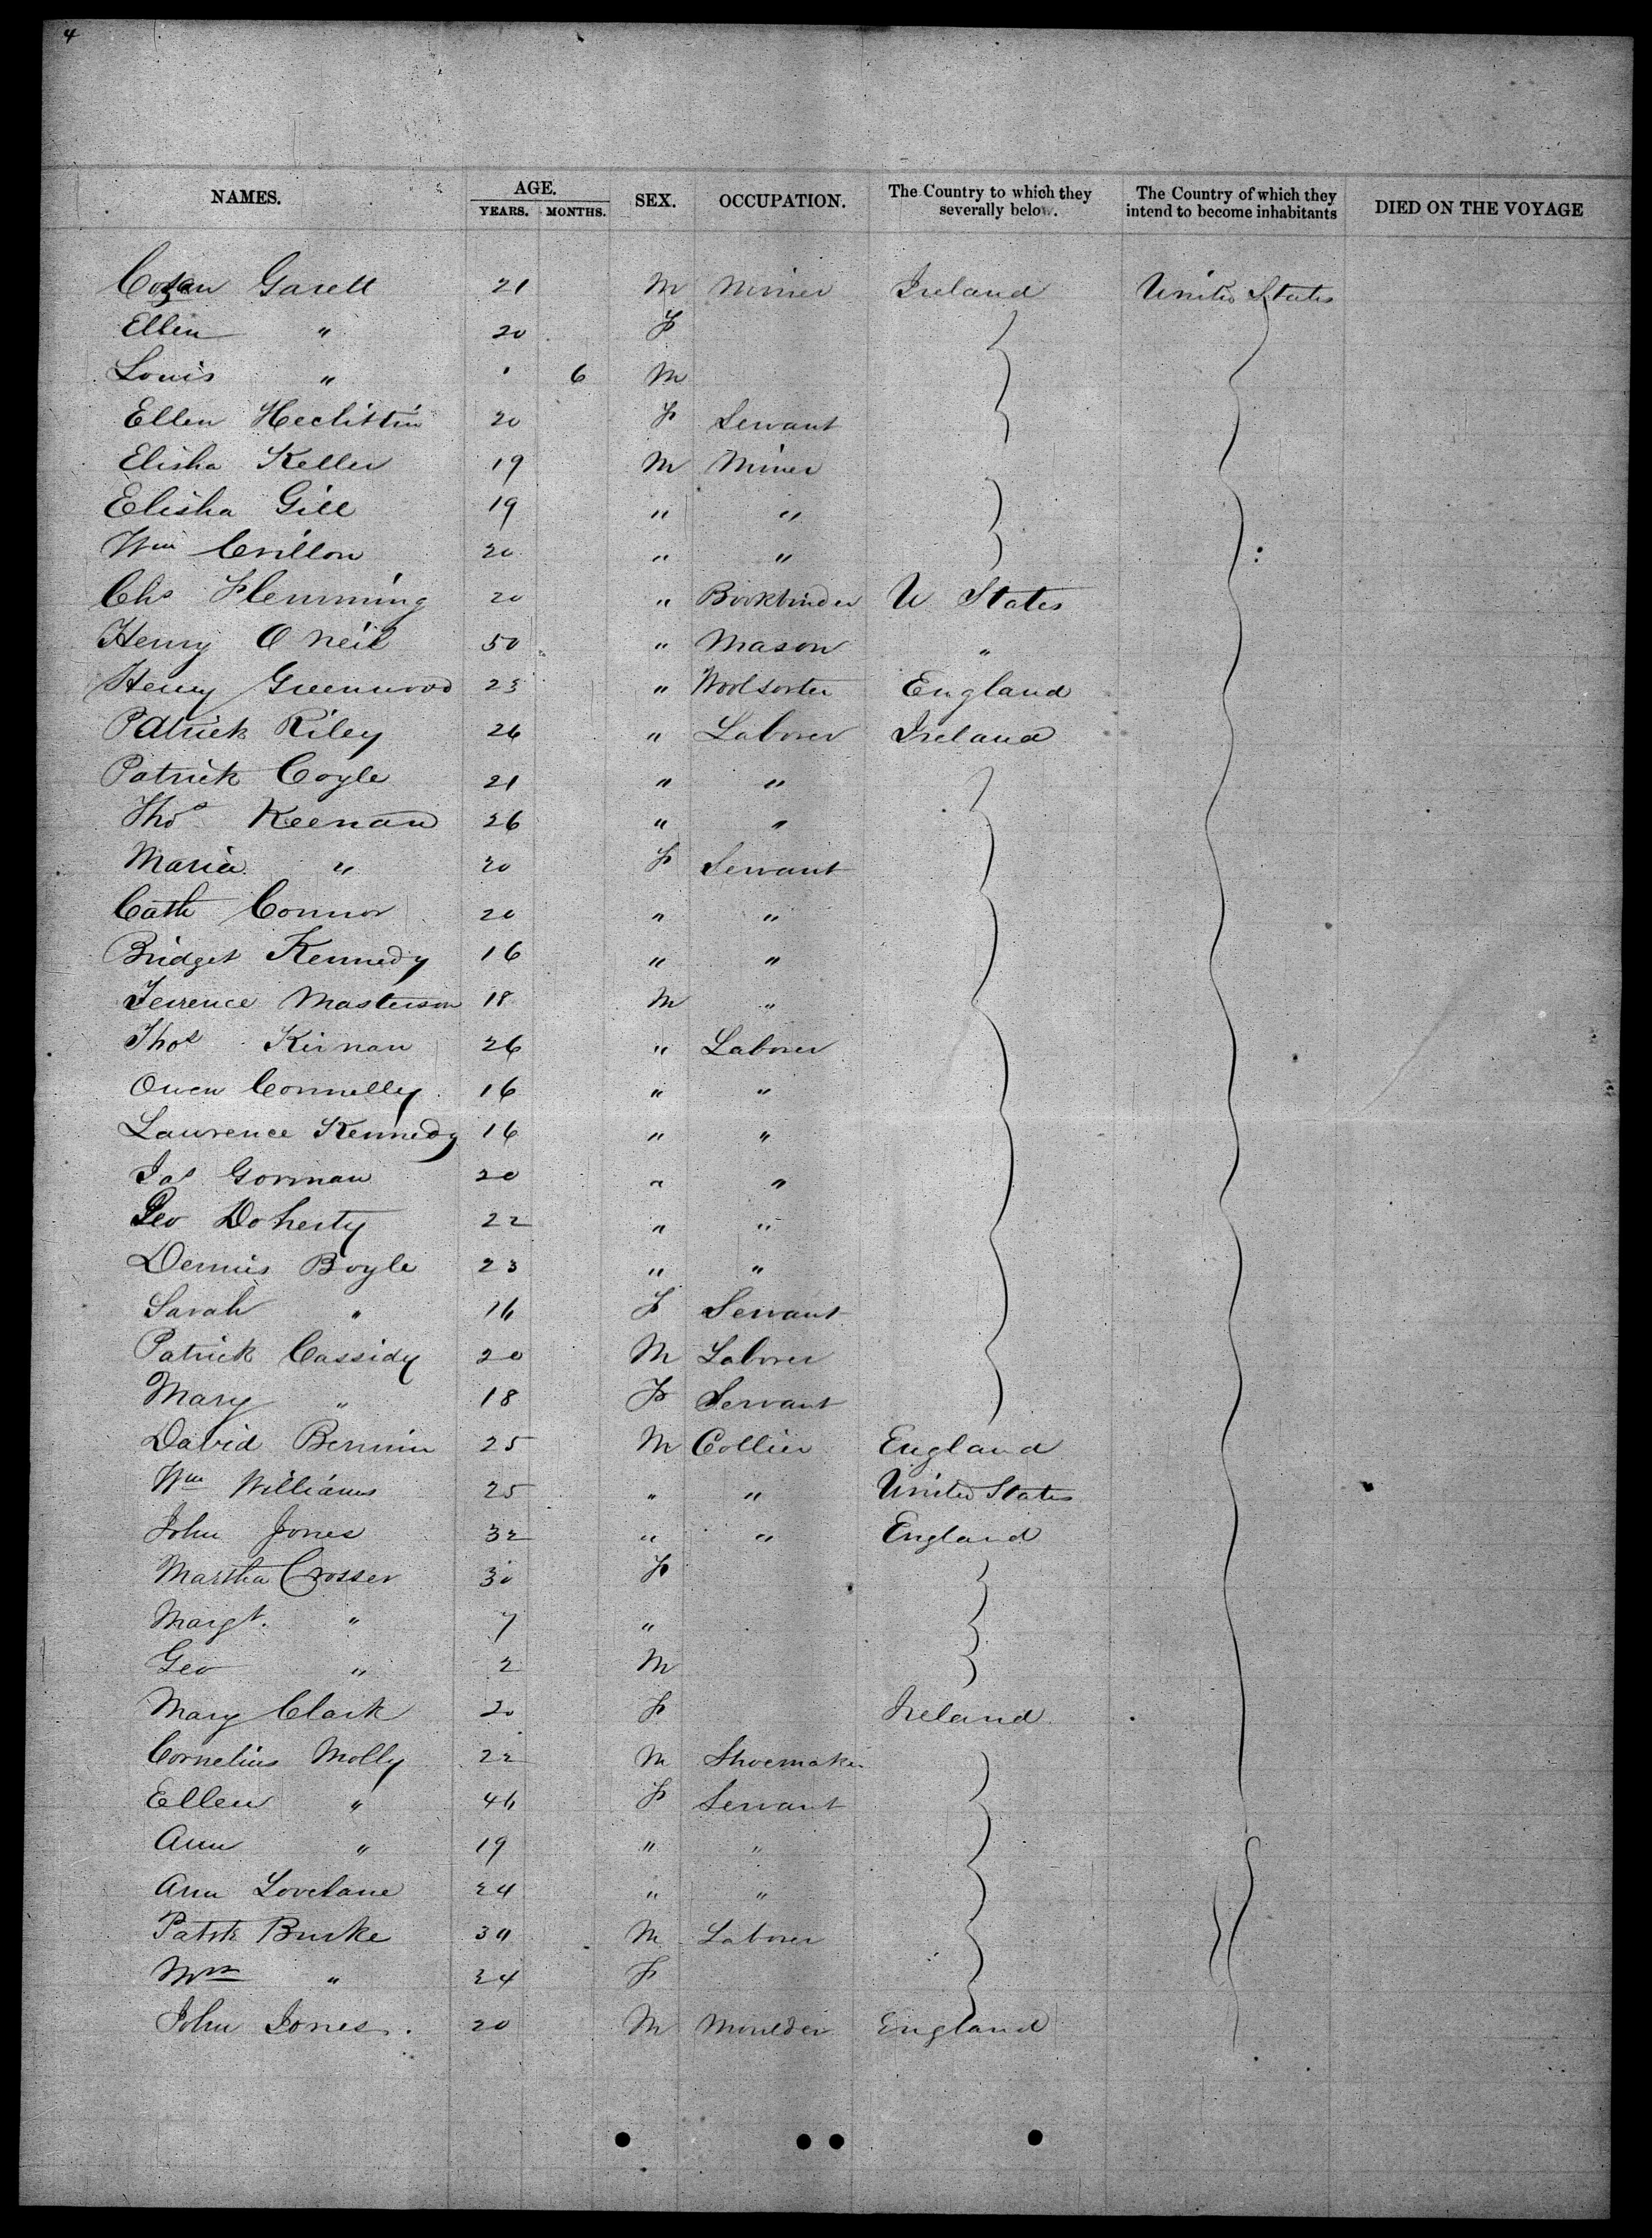 4
NAMES. AGE. YEARS. MONTHS. SEX. OCCUPATION. The Country to which they severally below. The Country of which they intend to become inhabitants DIED ON THE VOYAGE
Garett 21 M Miner Ireland United States
Ellen " 20 F
Louis " 6 M
Ellen 20 F Servant
Elisha Keller 19 M Miner
Elisha Gill 19 " "
Wm Crillon 20 " "
Chs Flemming 20 " Bookbinder U States
Henry O Neil 50 " Mason "
Henry Greenwood 23 " Woolsorter England
Patrick Riley 26 " Laborer Ireland
Patrick Coyle 21 " "
Thos Keenan 26 " "
Maria " 20 F Servant
Cath Connor 20 " "
Bridget Kennedy 16 " "
Terrence Masterson 18 M "
Thos Kirnan 26 " Laborer
Owen Connelly 16 " "
Laurence Kennedy 16 " "
Jas Gorman 20 " "
Geo Doherty 22 " "
Dennis Boyle 23 " "
Sarah " 16 F Servant
Patrick Cassidy 20 M Laborer
Mary " 18 F Servant
David 25 M Collier England
Wm Williams 25 " " United States
John Jones 32 " " England
Martha Crosser 30 F
Margt. " 7 "
Geo " 2 M
Mary Clark 20 F Ireland
Cornelius Molly 22 M Shoemaker
Ellen " 46 F Servant
Ann " 19 " "
Ann Lovelane 24 " "
Patrk Burke 30 M Laborer
Mrs " 24 F
John Jones. 20 M Moulder England